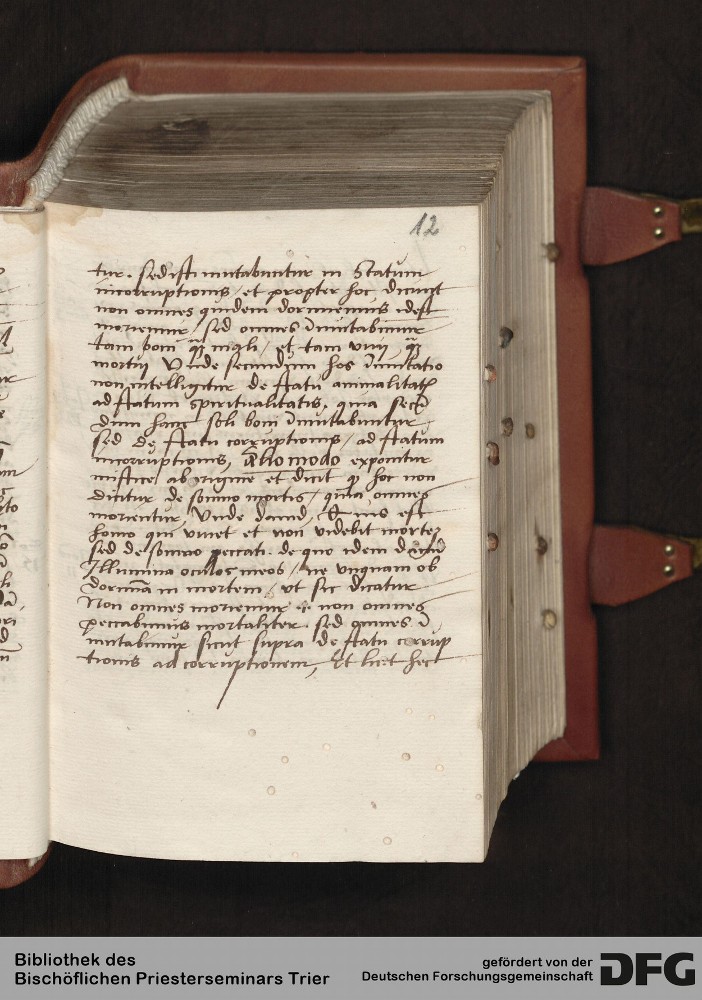 12
tur. sed isti mutabuntur in statum
incorruptionis, et propter hoc dicunt
non omnes quidem dormiemus idest
moriemur, sed omnes immutabimur
tam boni quam mali, et tam vivi quam
mortui Unde secundum hos immutatio
non intelligitur de statu animalitatis
ad statum spiritualitatis, quia secun
dum hanc soli boni immutabuntur,
sed de statu corruptionis, ad statum
incorruptionis, Alio modo exponitur
mistice ab origine et dicit quod hoc non
dicitur de somno mortis, quia omnes
morientur, Unde david, Quis est
homo qui vivet et non videbit mortem
sed de somno peccati. de quo idem david
Illumina oculos meos, ne unquam ob
dormiam in mortem, ut sic dicatur
Non omnes moriemur .i. non omnes
peccabimus mortaliter. sed omnes im
mutabimur sicut supra de statu corrup
tionis ad corruptionem, Et licet hec
Bibliothek des
Bischöflichen Priesterseminars Trier
gefördert von der
Deutschen Forschungsgemeinschaft
DFG